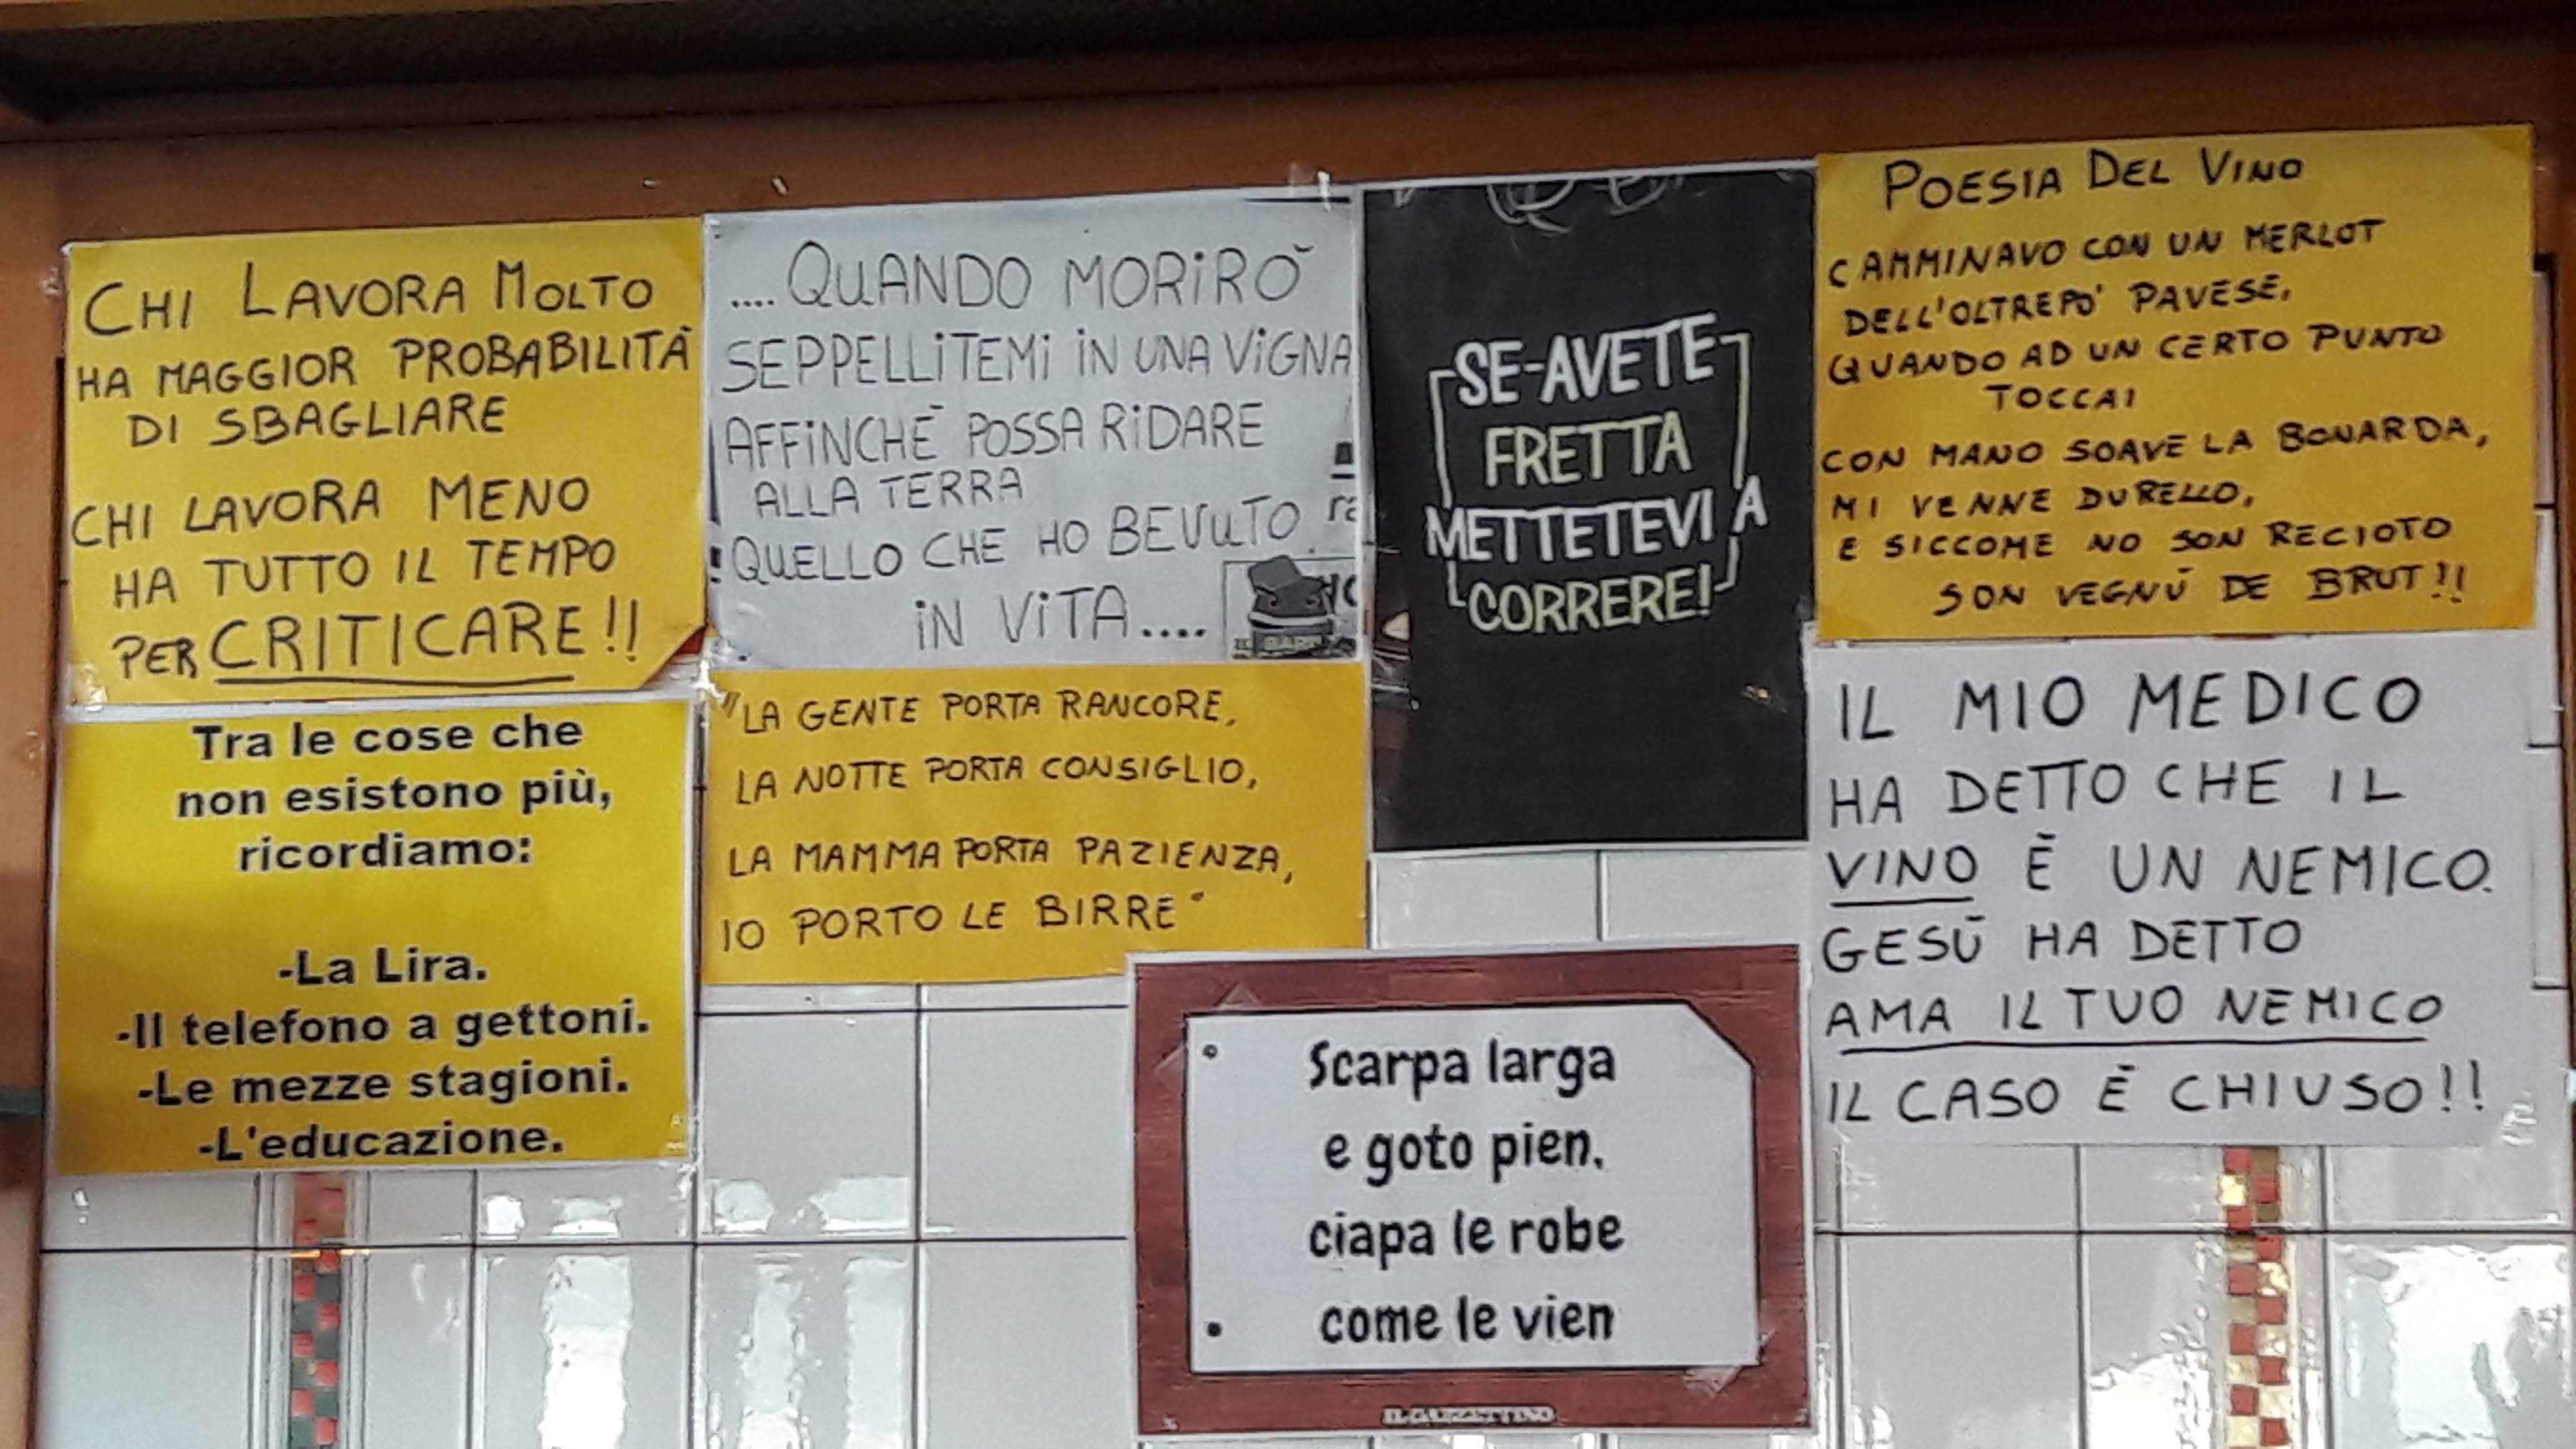 CHI LAVORA MOLTO
HA MAGGIOR PROBABILITÀ
DI SBAGLIARE
CHI LAVORA MENO
HA TUTTO IL TEMPO
PER CRITICARE!!
Tra le cose che
non esistono più,
ricordiamo:
-La Lira.
-Il telefono a gettoni.
-Le mezze stagioni.
-L'educazione.
....QUANDO MORIRÒ
SEPPELLITEMI IN UNA VIGNA
AFFINCHÈ POSSA RIDARE
ALLA TERRA
QUELLO CHE HO BEVUTO
IN VITA....
"LA GENTE PORTA RANCORE,
LA NOTTE PORTA CONSIGLIO,
LA MAMMA PORTA PAZIENZA,
IO PORTO LE BIRRE"
SE AVETE
FRETTA
METTETEVI A
CORRERE!
Scarpa larga
e goto pien,
ciapa le robe
come le vien
IL GAZZETTINO
POESIA DEL VINO
CAMMINAVO CON UN MERLOT
DELL'OLTREPO' PAVESE,
QUANDO AD UN CERTO PUNTO
TOCCAI
CON MANO SOAVE LA BONARDA,
MI VENNE DURELLO,
E SICCOME NO SON RECIOTO
SON VEGNÙ DE BRUT!!
IL MIO MEDICO
HA DETTO CHE IL
VINO È UN NEMICO.
GESÙ HA DETTO
AMA IL TUO NEMICO
IL CASO È CHIUSO!!